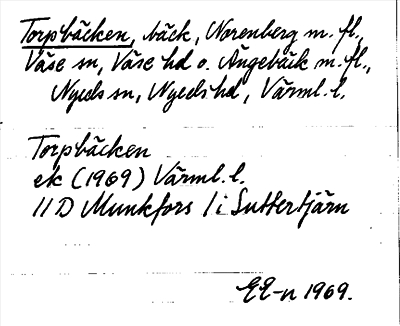 Torpbäcken, bäck, Norenberg m. fl.,
Väse sn, Väse hd o. Ängebäck m. fl.,
Nyeds sn, Nyeds hd, Värml. l.
Torpbäcken
ek (1969) Värml. l.
11 D Munkfors / i Suttertjärn
EE-n 1969.